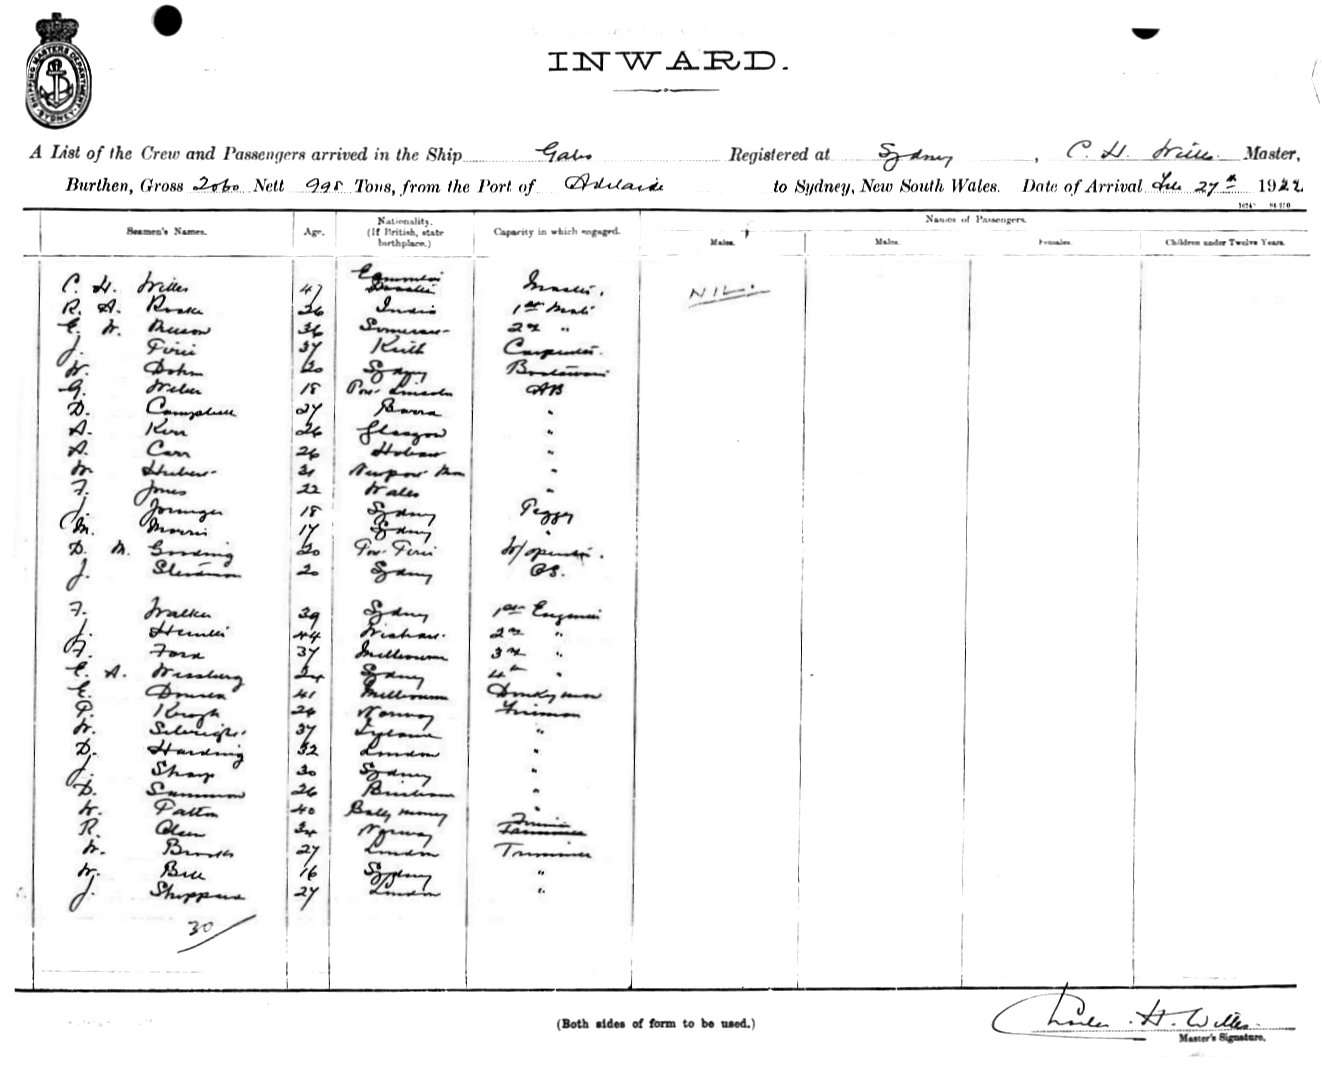 SHIPPING MASTERS DEPARTMENT SYDNEY
INWARD.
A List of the Crew and Passengers arrived in the Ship Gabo Registered at Sydney, C. H. Willes Master,
Burthen, Gross 2060 Nett 998 Tons, from the Port of Adelaide to Sydney, New South Wales. Date of Arrival Feb 27th 1922
Seamen's Names. Age. Nationality. (If British, state birthplace.) Capacity in which engaged. Names of Passengers.
Males. Males. Females. Children under Twelve Years.
C. H. Willes 47 Master. NIL.
R. A. 26 India 1st Mate
E. W. 36 2nd "
J. Pirie 37 Keith Carpenter.
W. Dohm 20 Sydney Boatswain
G. Weber 18 Port Lincoln AB
D. Campbell 27 Barra "
A. Kerr 26 Glasgow "
A. Carr 26 Hobart "
W. Hubert 31 Newport Mon "
F. Jones 22 Wales "
J. 18 Sydney Peggy
M. Morris 17 Sydney "
D. M. Gooding 20 Port Pirie W/operator.
J. 20 Sydney OS.
F. Walker 39 Sydney 1st Engineer
J. 44 Wishaw 2nd "
F. Ford 37 Melbourne 3rd "
E. A. Wissburg 24 Sydney 4th "
E. 41 Melbourne Donkeyman
P. Keogh 26 Norway Fireman
W. 37 "
D. Harding 32 London "
J. Sharp 30 Sydney "
D. 26 "
W. Patton 40 Ballymoney "
R. Olsen 34 Norway Trimmer
W. Brooks 27 London Trimmer
W. Bell 16 Sydney "
J. Sheppard 27 London "
30
(Both sides of form to be used.)
Charles H. Willes
Master's Signature.